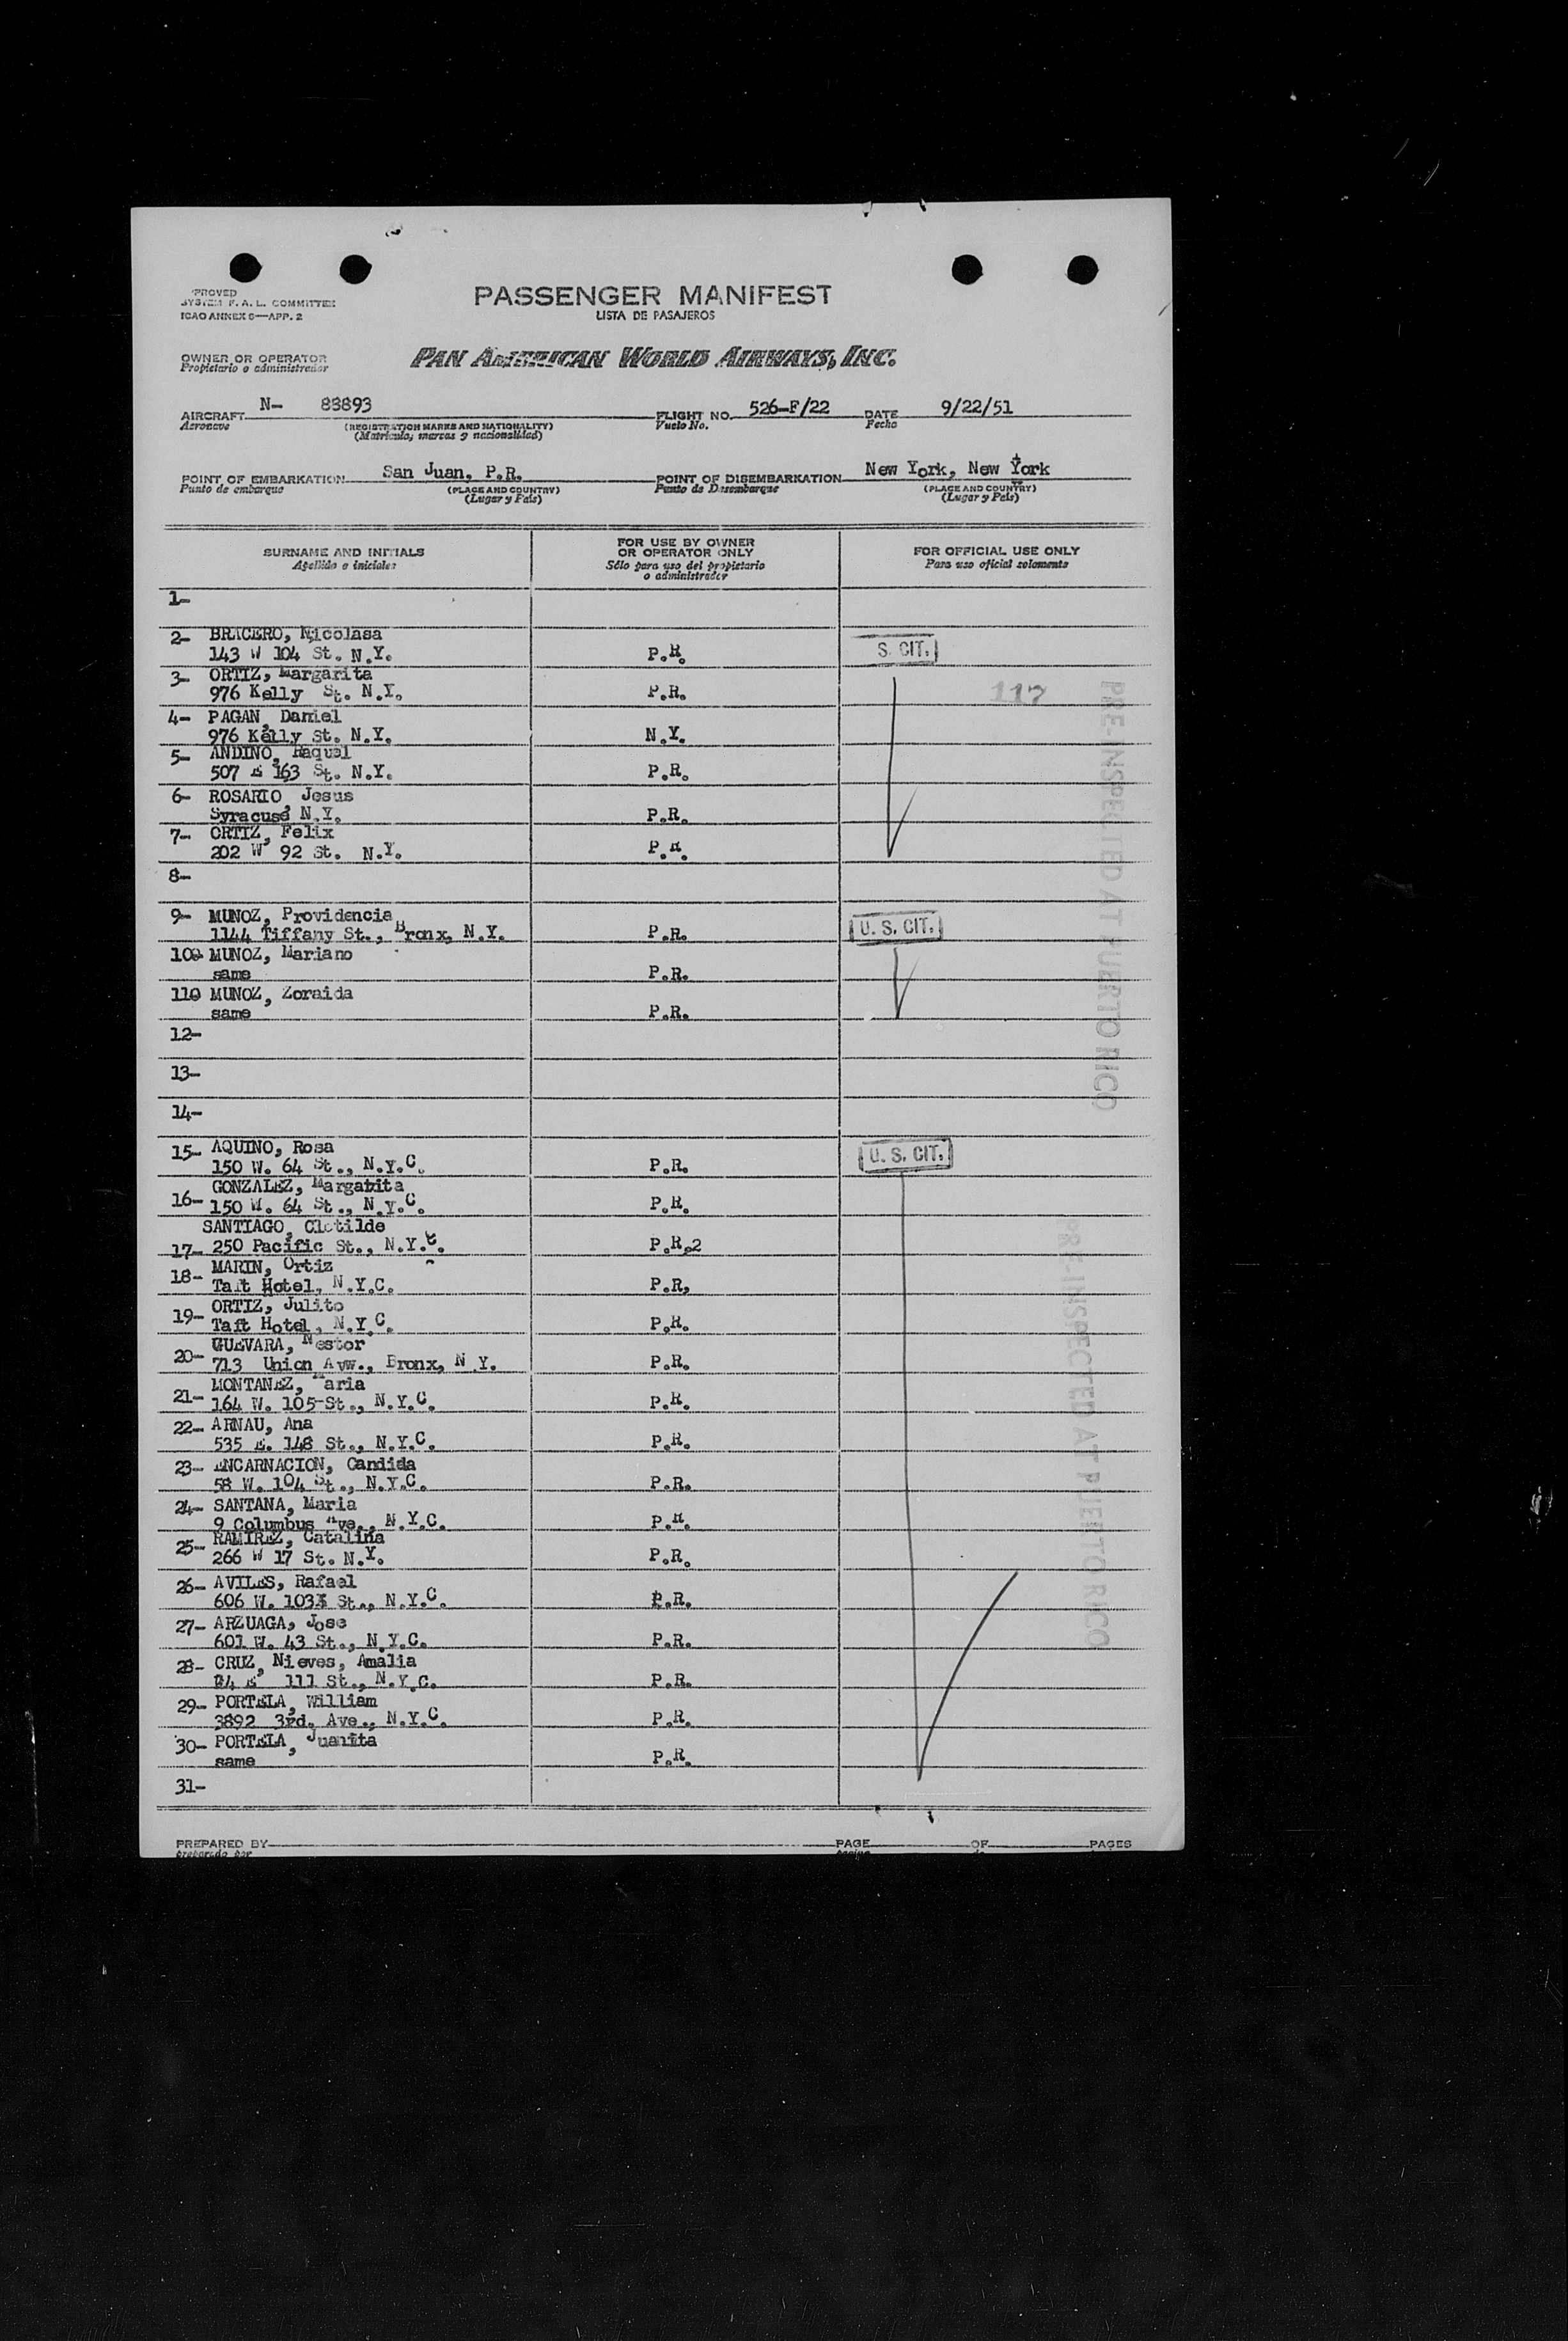 PROVED
SYSTEM F. A. L. COMMITTEE
ICAO ANNEX 9—APP. 2
PASSENGER MANIFEST
LISTA DE PASAJEROS
OWNER OR OPERATOR
Propietario o administrador
PAN AMERICAN WORLD AIRWAYS, INC.
AIRCRAFT N- 88893 FLIGHT NO. 526-F/22 DATE 9/22/51
Aeronave (REGISTRATION MARKS AND NATIONALITY) Vuelo No. Fecha
(Matricula, marcas y nacionalidad)
POINT OF EMBARKATION San Juan, P.R. POINT OF DISEMBARKATION New York, New York
Punto de embarque (PLACE AND COUNTRY) Punto de Desembarque (PLACE AND COUNTRY)
(Lugar y País) (Lugar y País)
SURNAME AND INITIALS
Apellido e iniciales
FOR USE BY OWNER
OR OPERATOR ONLY
Sólo para uso del propietario
o administrador
FOR OFFICIAL USE ONLY
Para uso oficial solamente
1-
2- BRACERO, Nicolasa
143 W 104 St. N.Y. P.R. S. CIT.
3- ORTIZ, Margarita
976 Kelly St. N.Y. P.R. 117
4- PAGAN, Daniel
976 Kelly St. N.Y. N.Y.
5- ANDINO, Raquel
507 E 163 St. N.Y. P.R.
6- ROSARIO, Jesus
Syracuse N.Y. P.R.
7- ORTIZ, Felix
202 W 92 St. N.Y. P.R.
8-
9- MUNOZ, Providencia
1144 Tiffany St., Bronx, N.Y. P.R. U. S. CIT.
10- MUNOZ, Mariano
same P.R.
110 MUNOZ, Zoraida
same P.R.
12-
13-
14-
15- AQUINO, Rosa
150 W. 64 St., N.Y.C. P.R. U. S. CIT.
GONZALEZ, Margarita
16- 150 W. 64 St., N.Y.C. P.R.
SANTIAGO, Clotilde
17- 250 Pacific St., N.Y.C. P.R.2
MARIN, Ortiz
18- Taft Hotel, N.Y.C. P.R,
ORTIZ, Julito
19- Taft Hotel, N.Y.C. P.R.
GUEVARA, Nestor
20- 713 Union Avw., Bronx, N.Y. P.R.
MONTANEZ, Maria
21- 164 W. 105-St., N.Y.C. P.R.
22- ARNAU, Ana
535 E. 148 St., N.Y.C. P.R.
23- ENCARNACION, Candida
58 W. 104 St., N.Y.C. P.R.
24- SANTANA, Maria
9 Columbus Ave., N.Y.C. P.R.
25- RAMIREZ, Catalina
266 W 17 St. N.Y. P.R.
26- AVILES, Rafael
606 W. 103 St., N.Y.C. P.R.
27- ARZUAGA, Jose
601 W. 43 St., N.Y.C. P.R.
28- CRUZ, Nieves, Amalia
E 111 St., N.Y.C. P.R.
29- PORTELA, William
3892 3rd. Ave., N.Y.C. P.R.
30- PORTELA, Juanita
same P.R.
31-
PRE-INSPECTED AT PUERTO RICO
PRE-INSPECTED AT PUERTO RICO
PREPARED BY PAGE OF PAGES